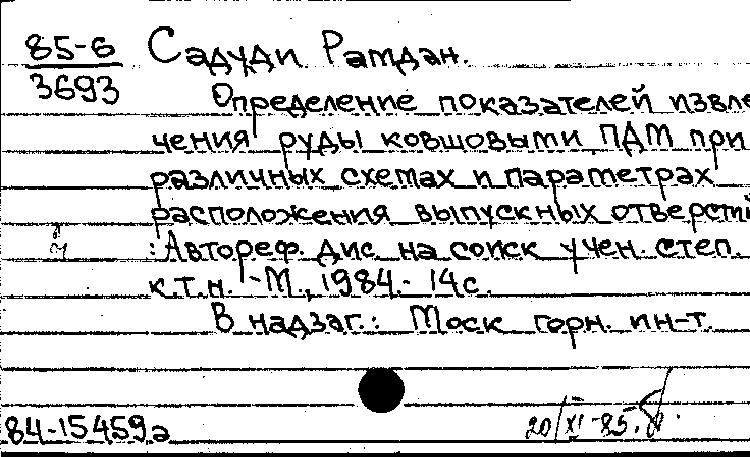 85-6 Садуди Рамдан.
3693
Определение показателей извле
чения руды ковшовыми ПДМ при
различных схемах и параметрах
расположения выпускных отверсти
: Автореф. дис. на соиск учен. степ.
к.т.н. - М., 1984.- 14с.
В надзаг.: Моск горн. ин-т.
84-15459а
20/XI-85.